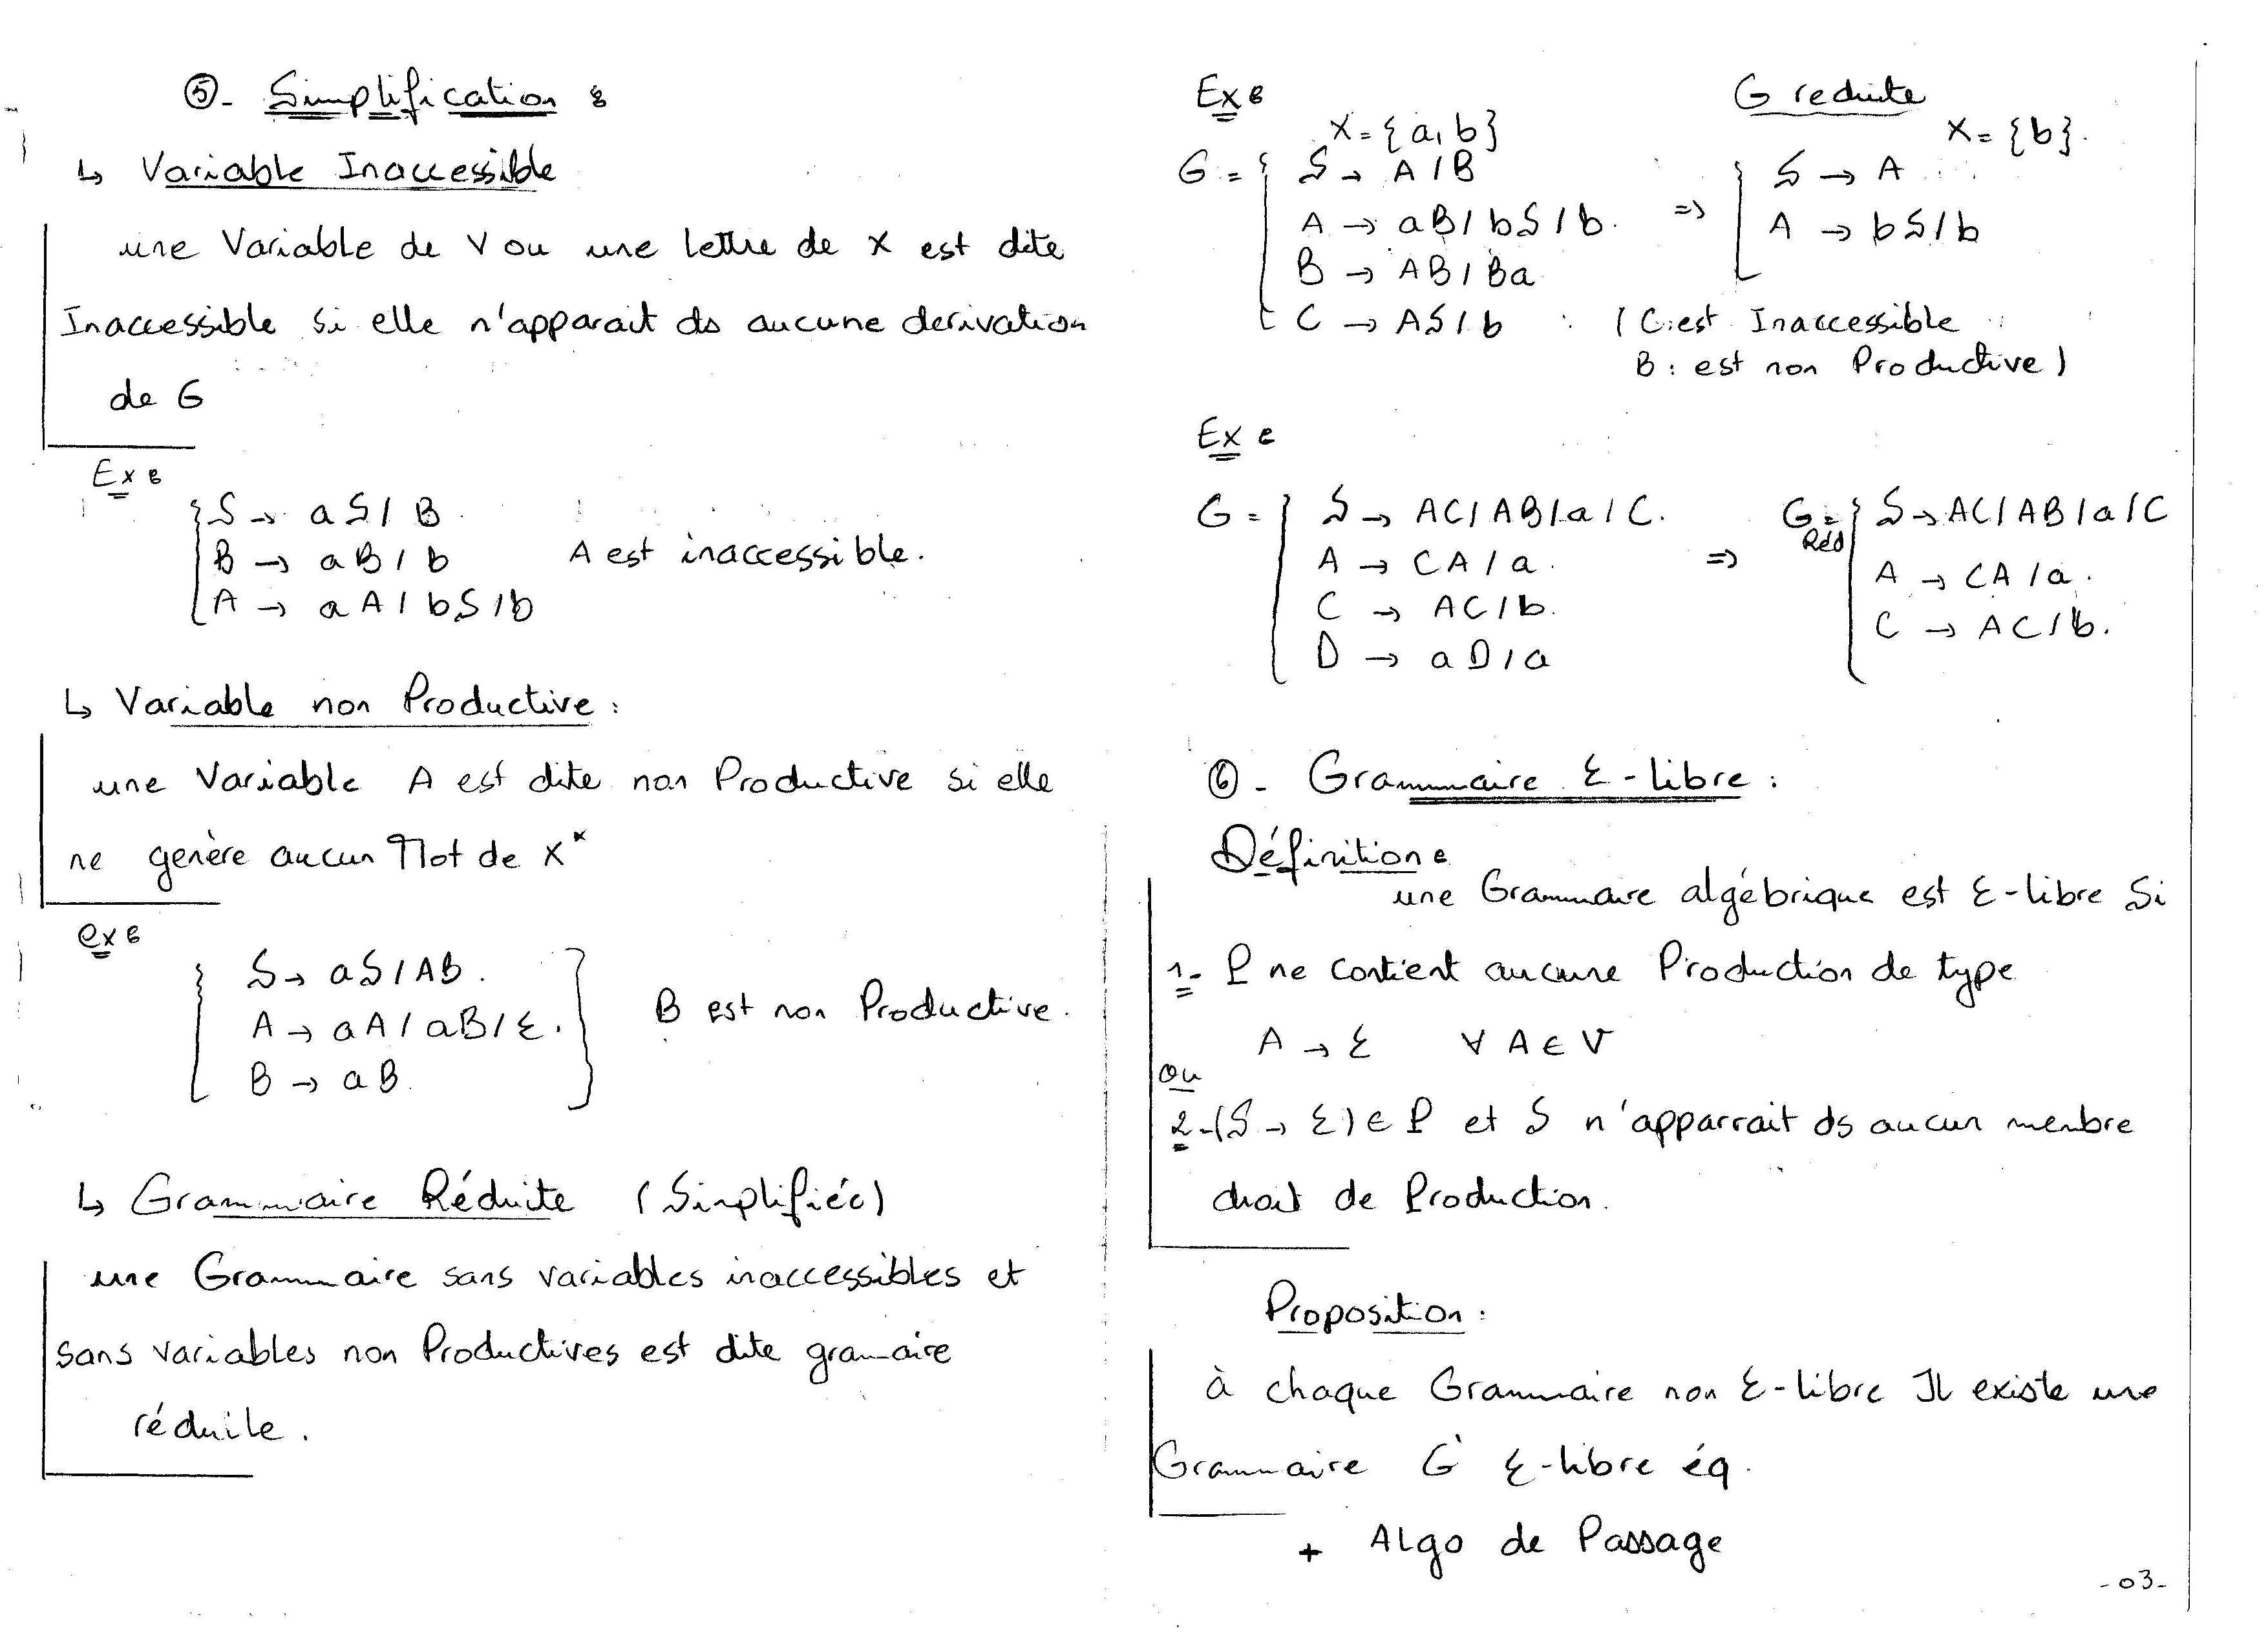 ⑤- Simplification :
↳ Variable Inaccessible
une Variable de V ou une lettre de X est dite
Inaccessible si elle n'apparait ds aucune derivation
de G
Ex :
S → aS / B
B → aB / b
A est inaccessible.
A → aA / bS / b
↳ Variable non Productive :
une Variable A est dite non Productive si elle
ne genère aucun Mot de X*
ex :
S → aS / AB.
A → aA / aB / ε.
B est non Productive.
B → aB.
↳ Grammaire Réduite (Simplifiée)
une Grammaire sans variables inaccessibles et
sans variables non Productives est dite gramaire
réduite.
Ex :
G reduite
X = {a, b}
X = {b}.
G = { S → A / B
A → aB / bS / b.
B → AB / Ba
C → AS / b
=> { S → A
A → bS / b
( C : est Inaccessible
B : est non Productive )
Ex :
G = { S → AC / AB / a / C.
A → CA / a.
C → AC / b.
D → aD / a
=> G Réd = { S → AC / AB / a / C
A → CA / a.
C → AC / b.
⑥ - Grammaire ε-libre :
Définition :
une Grammaire algébrique est ε-libre Si
1- P ne contient aucune Production de type
A → ε ∀ A ∈ V
ou
2-(S → ε) ∈ P et S n'apparrait ds aucun menbre
droit de Production.
Proposition :
à chaque Grammaire non ε-libre Il existe une
Grammaire G' ε-libre éq.
+ ALgo de Passage
-03-